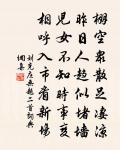 棚空衆散足淒涼
昨日人趨似堵墻
兒女不知時事變
相呼入市看新場
劉克莊無題二首詞典
網集